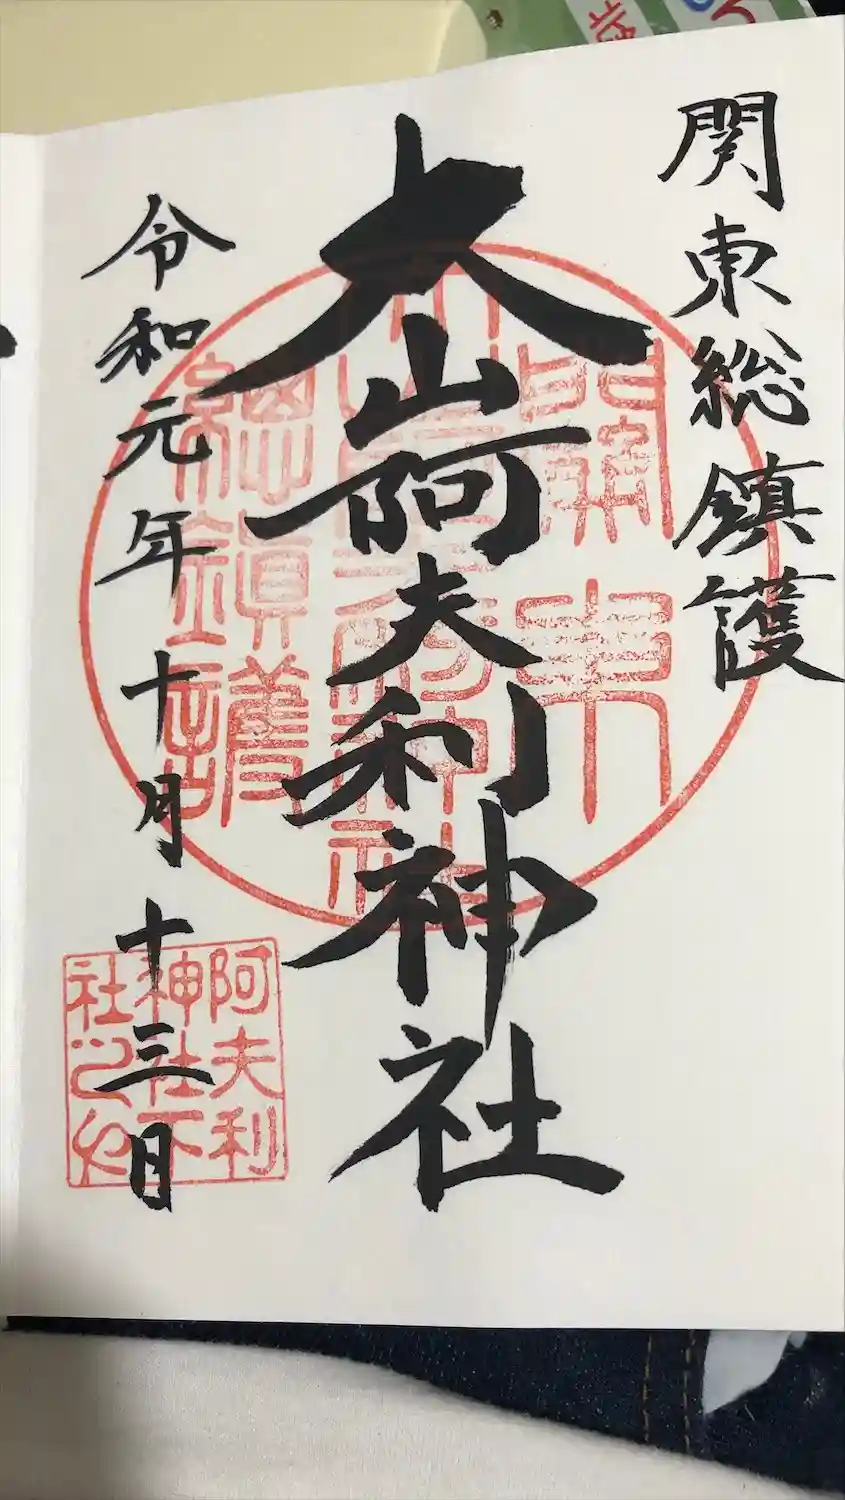 関東総鎮護
大山阿夫利神社
令和元年十月十三日
關東
總鎮護
阿夫利
神社下
社之や